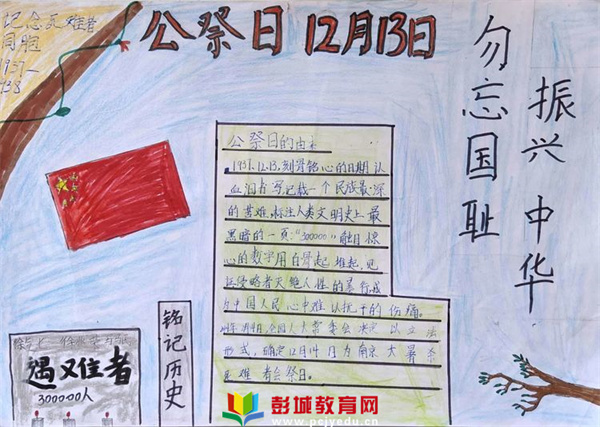 记念死难者
同胞
1937—
938
公祭日 12月13日
勿忘国耻
振兴中华
公祭日的由来
1937.12.13,刻骨铭心的日期
血泪书写记载一个民族最深
的苦难,标注人类文明史上最
黑暗的一页:"300000"触目惊
心的数字用白骨起堆起,见
证侵略者灭绝人性的暴行成
为中国人民心中难以抚干的伤痛。
全国人大常委会决定以立法
形式,确定12月 日为南京大屠杀
死难者公祭日。
铭记历史
遇难者
300000人
彭城教育网
www.pcjyedu.cn